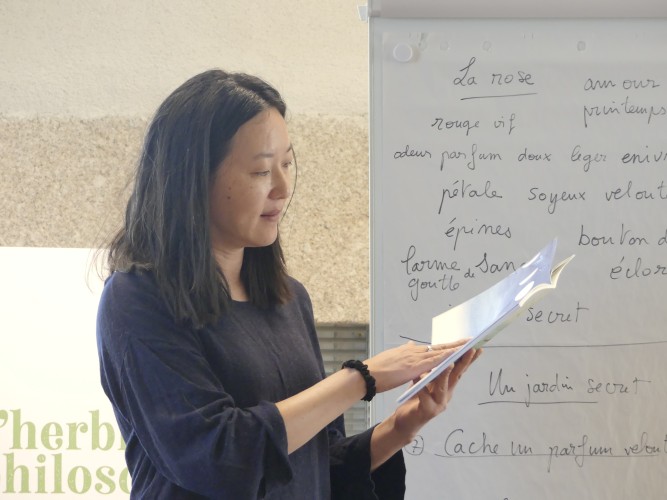 La rose amour
printemps
rouge vif
odeur parfum doux léger eniv
pétale soyeux velout
épines bouton d
larme de sang éclor
goutte
secret
Un jardin secret
7 Cache un parfum velout
'herbi
philoso